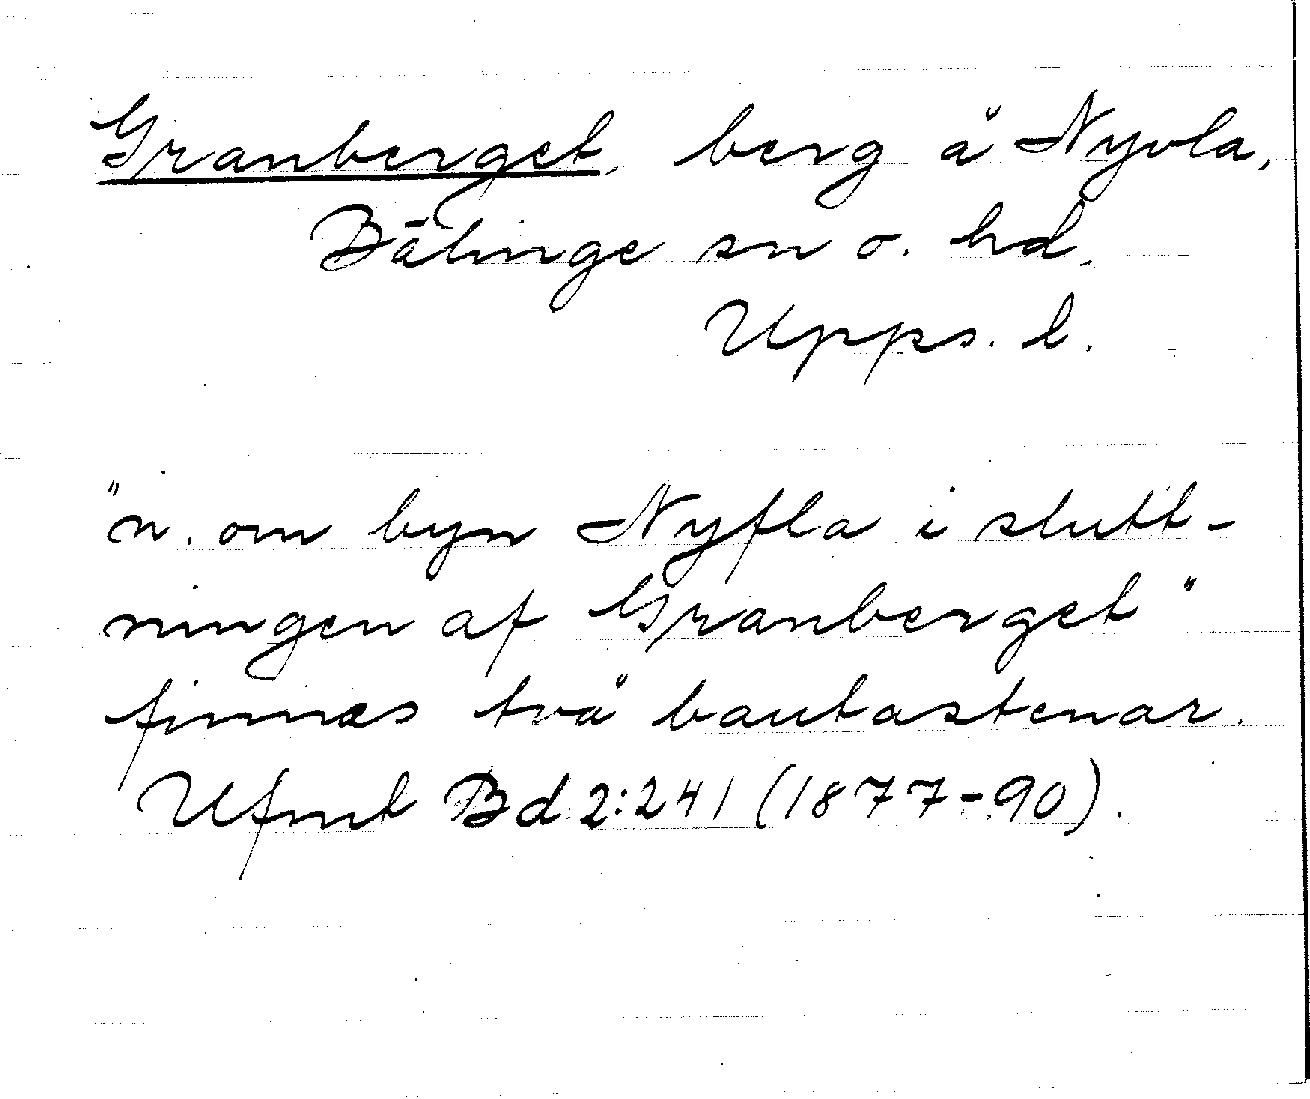 Granberget, berg å Nyvla,
Bälinge sn o. hd.
Upps. l.
"n. om byn Nyfla i slutt-
ningen af Granberget"
finnas två bautastenar.
Ufmt Bd 2:241 (1877-90).